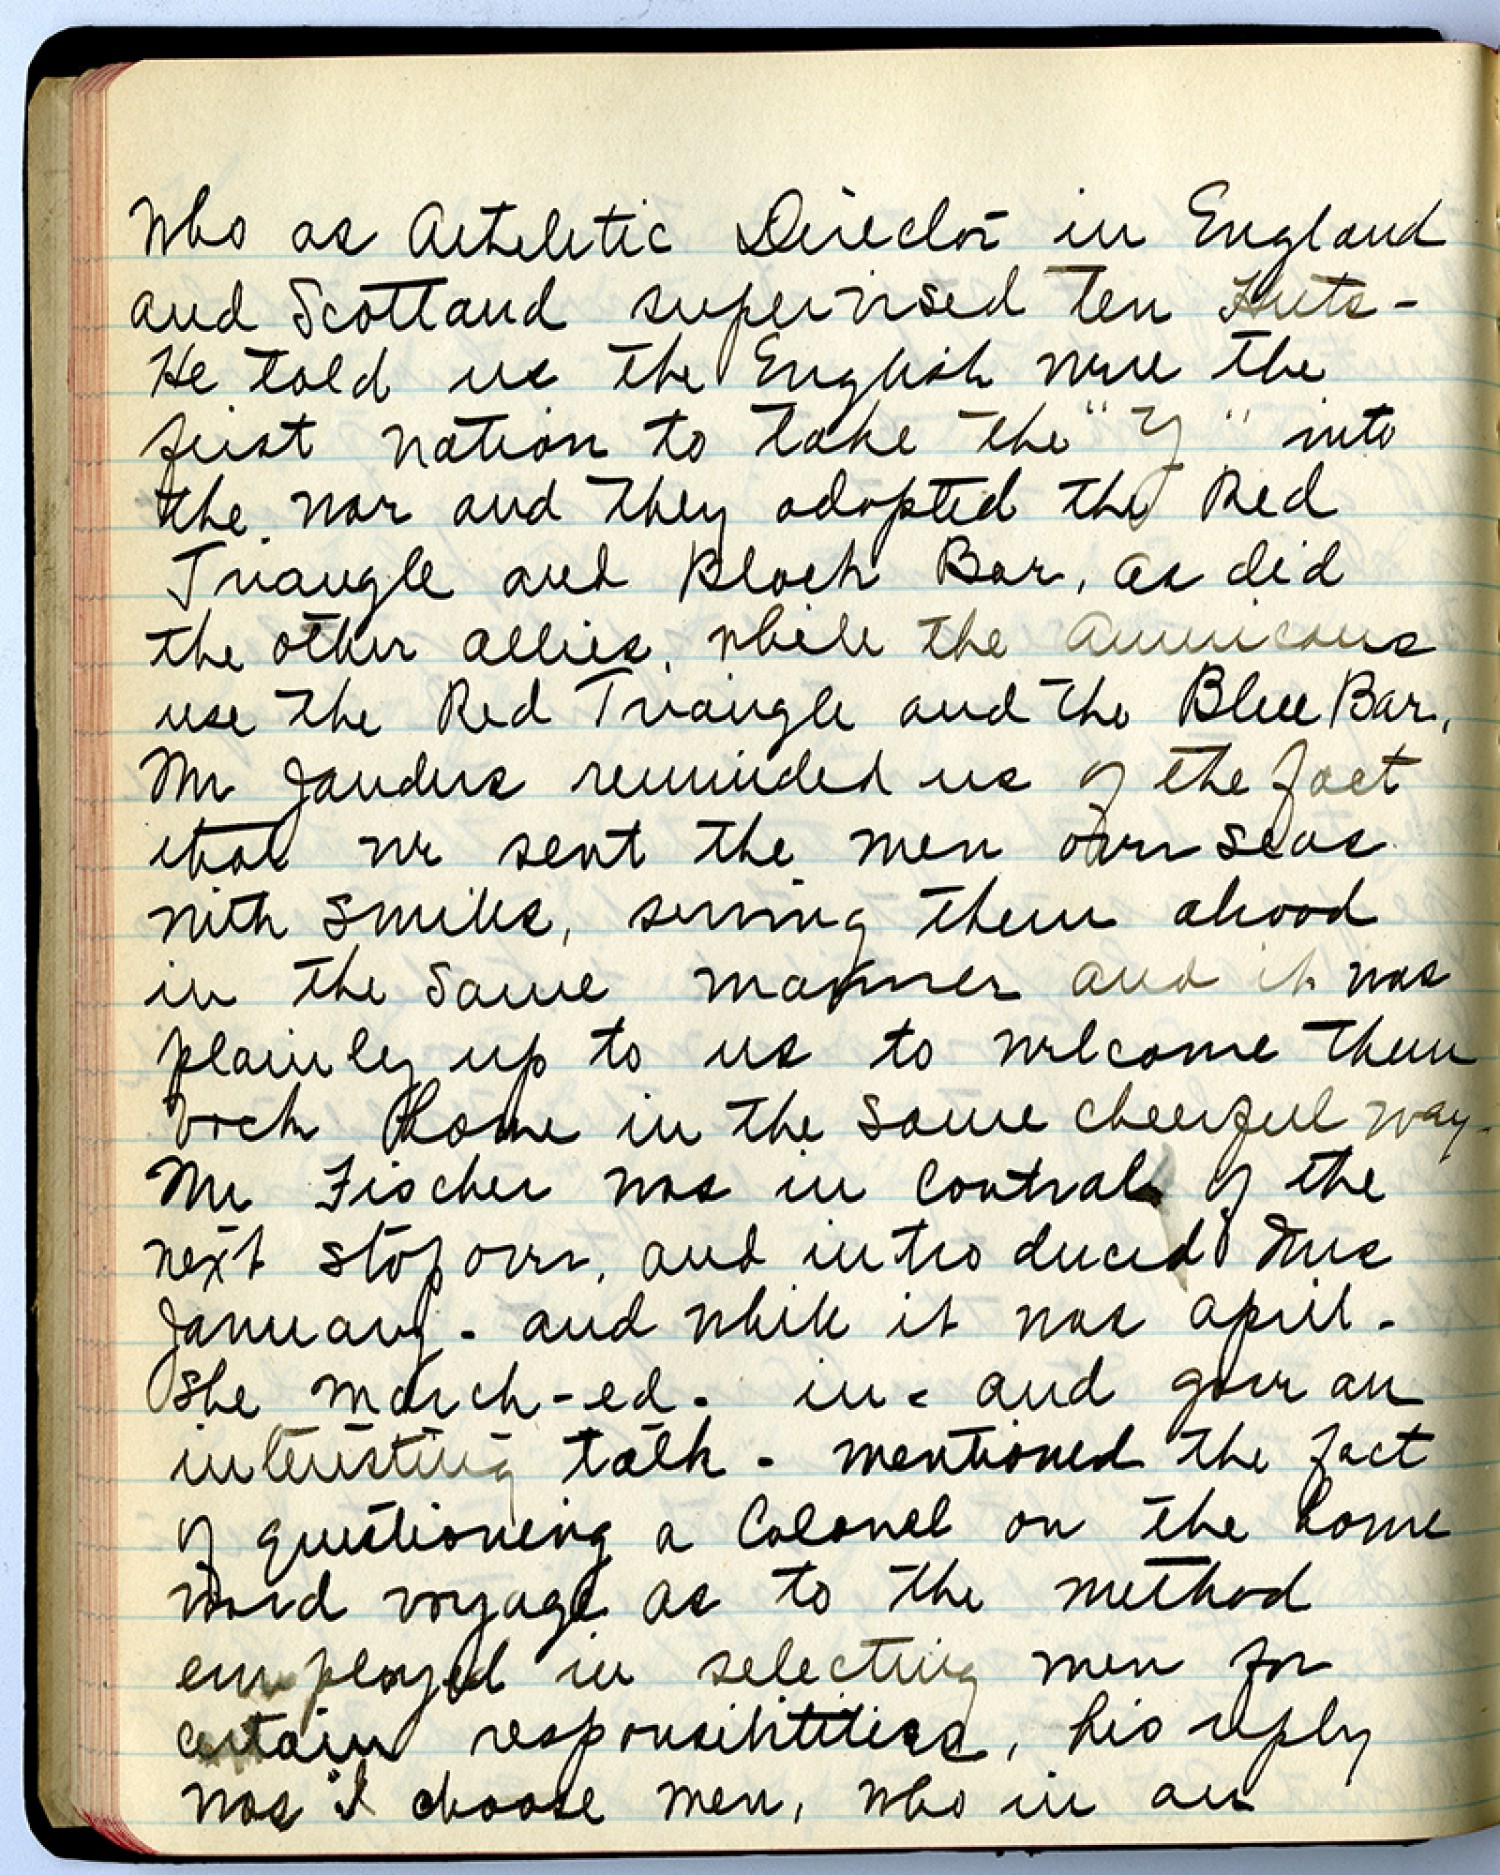 Who as Atheletic Director in England
and Scotland supervised ten Huts -
He told us the English were the
first nation to take the "Y" into
the war and they adopted the Red
Triangle and Black Bar, as did
the other allies, while the Americans
use the Red Triangle and the Blue Bar.
Mr Janders reminded us of the fact
that we sent the men over seas
with smiles, serving them abroad
in the same manner and it was
plainley up to us to welcome them
back home in the same cheerful way.
Mr Fischer was in control of the
next stop over, and introduced Mrs
January - and while it was April -
She March-ed - in - and gave an
interesting talk - mentioned the fact
of questioning a Colonel on the home
ward voyage as to the method
employed in selecting men for
certain responsibilities, his reply
was "I choose men, who in an